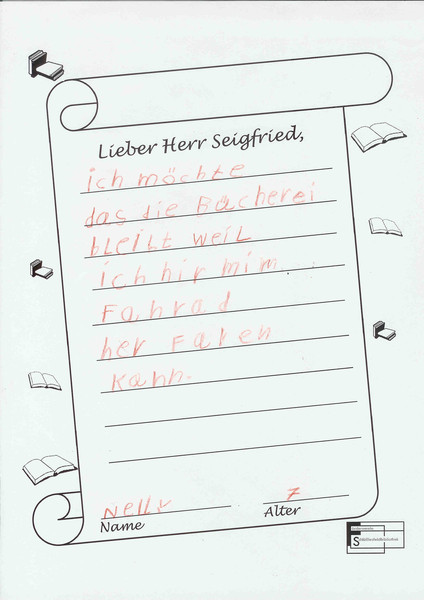 Lieber Herr Seigfried,
ich möchte
das die Bücherei
bleibt weil
ich hir mim
Fahrad
her Faren
kann.
Nelly
7
Name
Alter